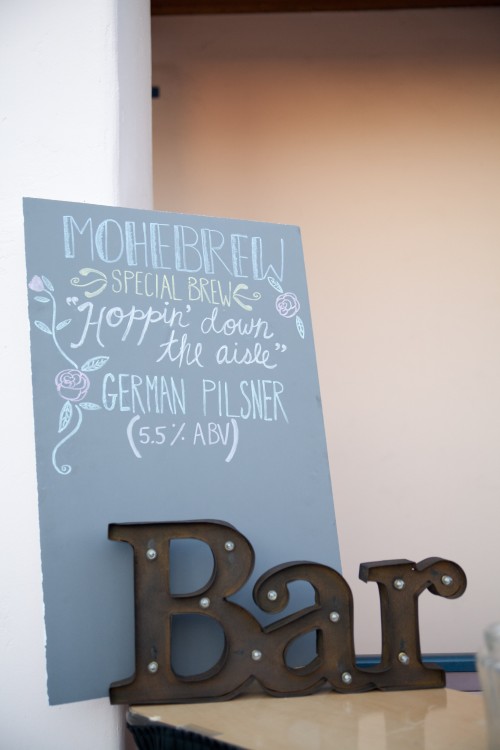 MOHEBREW
SPECIAL BREW
"Hoppin' down
the aisle"
GERMAN PILSNER
(5.5% ABV)
Bar